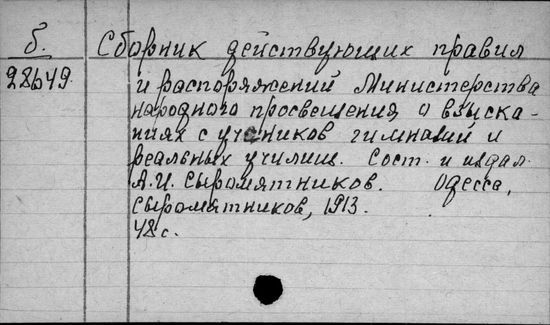 б. Сборник действующих правил
28649 и распоряжений Министерства
народного просвещения о взыска-
ниях с учеников гимназий и
реальных училищ. Сост. и издал
А.И. Сыромятников. Одесса,
Сыромятников, 1913.
48 с.